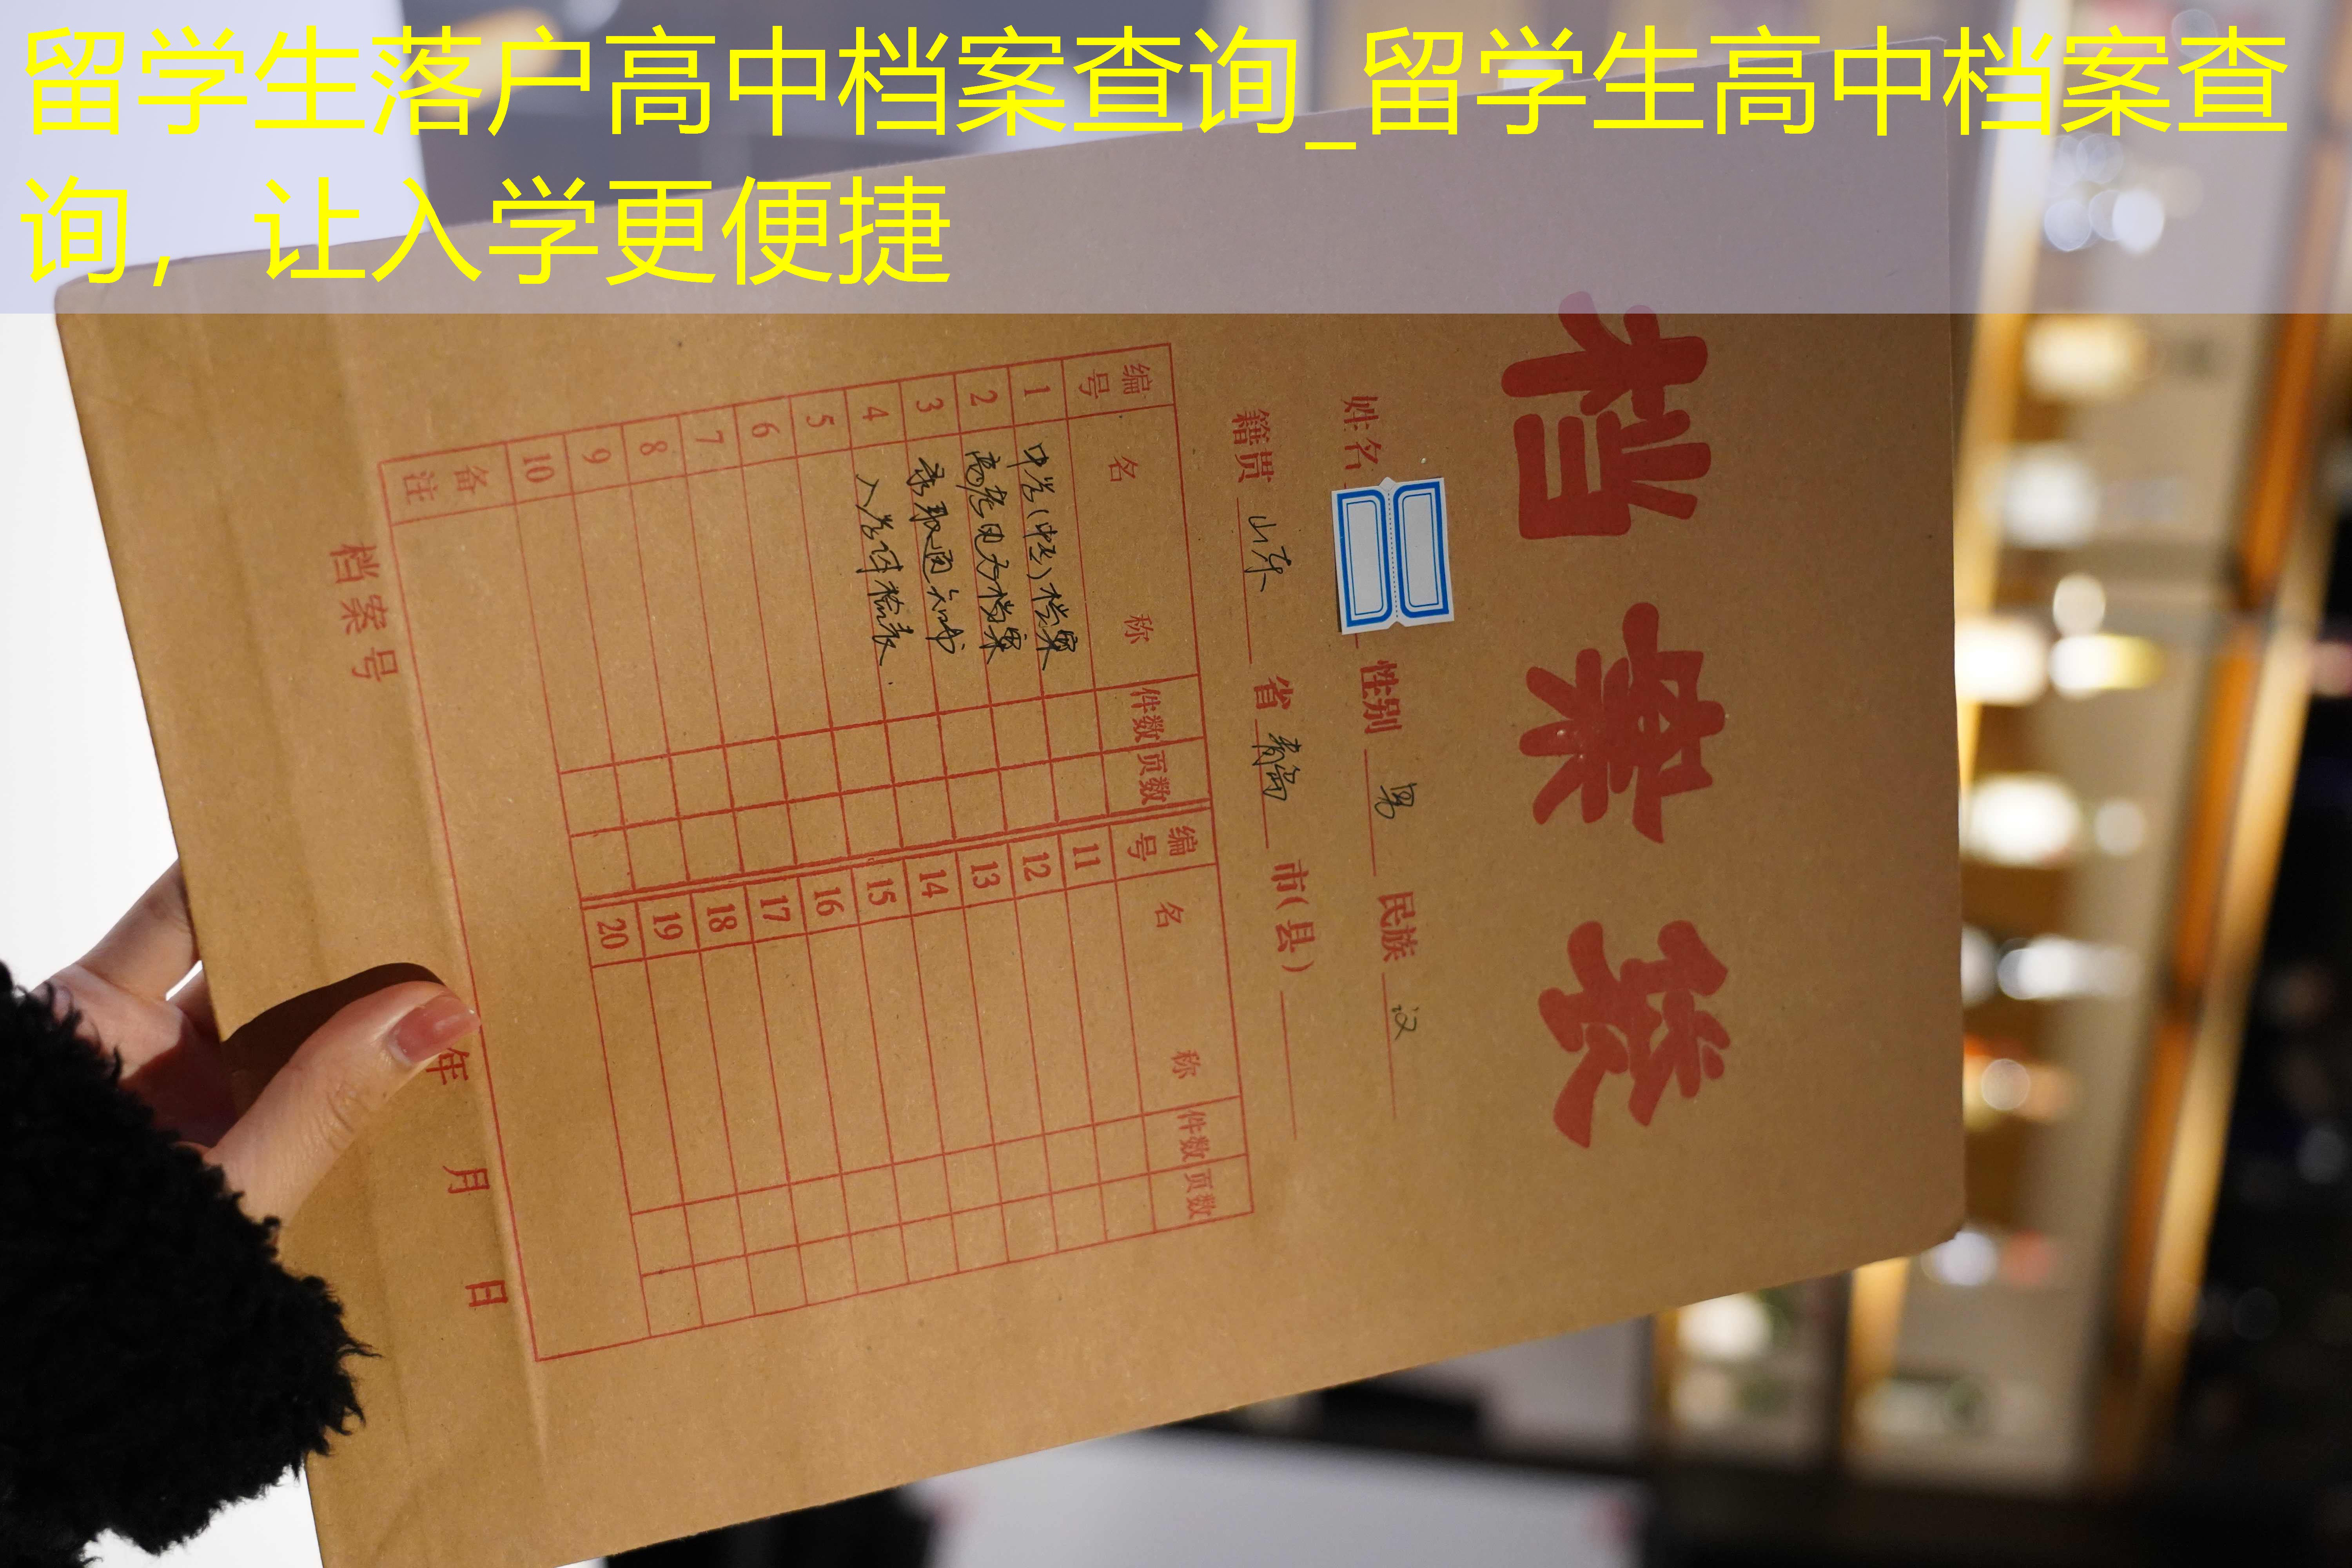 留学生落户高中档案查询_留学生高中档案查
询，让入学更便捷
档案袋
姓名 性别 男 民族 汉
籍贯 山东 省 青岛 市(县)
编号 名称 件数 页数 编号 名称 件数 页数
1 中学(中专)档案 11
2 高考电子档案 12
3 录取通知书 13
4 入学译检表 14
5 15
6 16
7 17
8 18
9 19
10 20
备注
档案号 年 月 日